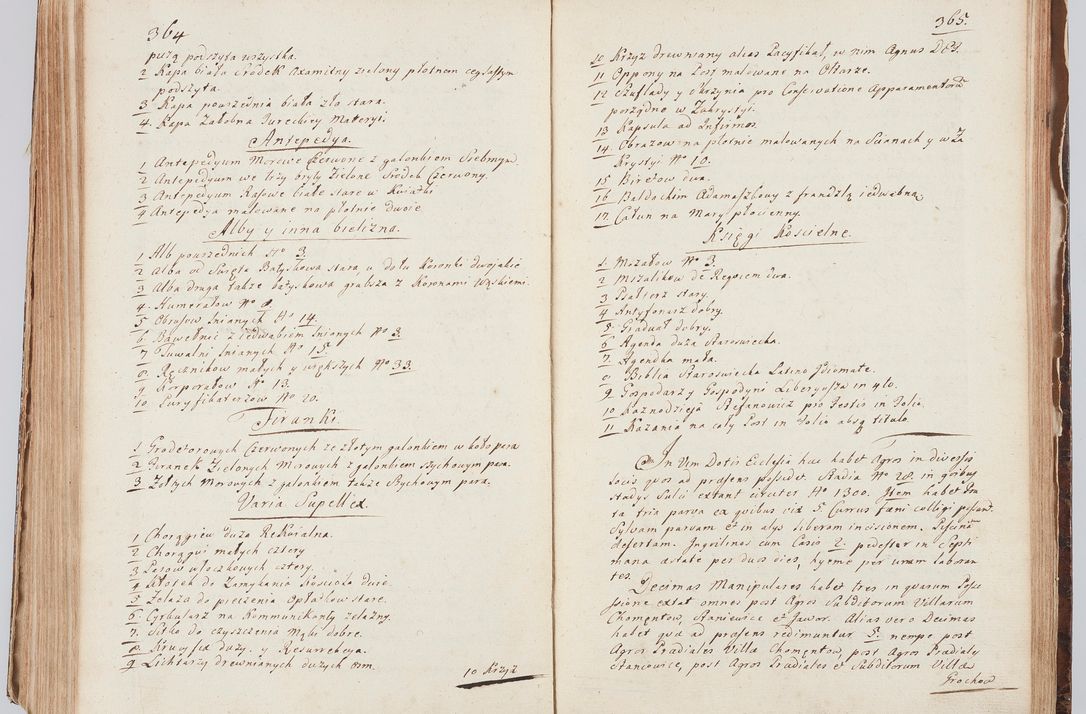 364
purą podszyta wszystka.
2 Kapa biała Srodek axamitny zielony płotnem ceglastym
podszyta.
3 Kapa powszednia biała zło stara.
4. Kapa Załobna Tureckiey Materyi
Antepedya.
1 Antepedyum Morowe Czerwone z galonkiem Srebnym
2 Antepedyum we trzy bryty Zielone Srodek Czerwony.
3 Antepedyum Rasowe białe stare w kwiatki
4 Antepedya malowane na płotnie dwoie
Alby y inna bielizna.
1 Alb powszednich No 3
2 Alba od Święta Batyskowa stara u dołu Koronki dwojakie
3 Alba druga także batyskowa grubsza z Koronami Wąskiemi.
4. Humerałow No
5 Obrusow lnianych No 14.
6. Bawełnic z iedwabiem lnianych No 3
7 Tuwalni lnianych No 15.
8. Ręcznikow małych y większych No 33.
9 Korporałow No 13.
10. Puryfikaterzow No 20.
Firanki.
1 Grodetorowych Czerwonych ze złotym galonkiem w koło para
2 Firanek Zielonych Morowych z galonkiem Szychowym para.
3 Zołtych Morowych z galonkiem także Szychowym para.
Varia Supellex.
1 Chorągiew duża Reskuralna.
2 Chorągwi małych cztery
3 Pasow włoczkowych cztery.
4 Kłotek do Zamykania Kościoła dwie.
5 Zelaza do pieczenia Opłatkow stare.
6. Cyrkularz na Kommunikanty zelazny.
7. Sitko do czyszczenia Mąki dobre.
8. Krucyfix duży y Resurrekcya.
9 Lichtarzy drewnianych dużych osm.
10 Krzyż
365.
10 Krzyż drewniany alias Pacyfikał, w nim Agnus DEI.
11 Oppony na Post malowane na Ołtarze.
12 Szuflady y skrzynia pro Conservatione Apparamentorū
porządne w Zakrystyi.
13 Kapsula ad Infirmos.
14. Obrazow na płotnie malowanych na Scianach y w Za
Krystyi No 10.
15 Biretow dwa.
16 Baldachim Adamaszkowy z frandzlą iedwabną
17. Całun na Mary płocienny.
Księgi Koscielne.
1. Mszałow No 3.
2 Mszalikow de Requiem dwa.
3 Psałterz stary.
4 Antyfonarz dobry.
5. Graduał dobry.
6 Agenda duża Staroswiecka.
7. Agendka mała.
8 Biblia Staroswiecka Latino Idiomate.
9. Gospodarz y Gospodyni Liberyusza in 4to.
10 Kaznodzieja Stefanowicz pro Festis in Folio.
11 Kazania na cały Post in Folio absq titulo.
In Vim Dotis Ecclesia hac habet Agros in diversis
locis quos ad præsens possidet. Stadia No 20. in quibus
stadys Sulci extant circiter No 1300. Item habet Pra
ta tria parva ex quibus vix 5. Currus fæni colligi possunt.
Sylvam parvam et in alys liberam incisionem. Piscina
desertam. Inquilinos cum Casis 2. pedester in Septi
mana æstate per duos dies, hyeme per unum laboran
tes.
Decimas Manipulares habet tres in quarum Posse
ssione extat omnes post Agros Subditorum Villarum
Chomentow, Staniewice et Jawor. Alias vero Decimas
habet qvæ ad præsens redimuntur 5. nempe post
Agros Prædiales Villæ Chomentow, post Agros Prædialy
Stanowice, post Agros Prædiales et Subditorum Villæ
Grochow